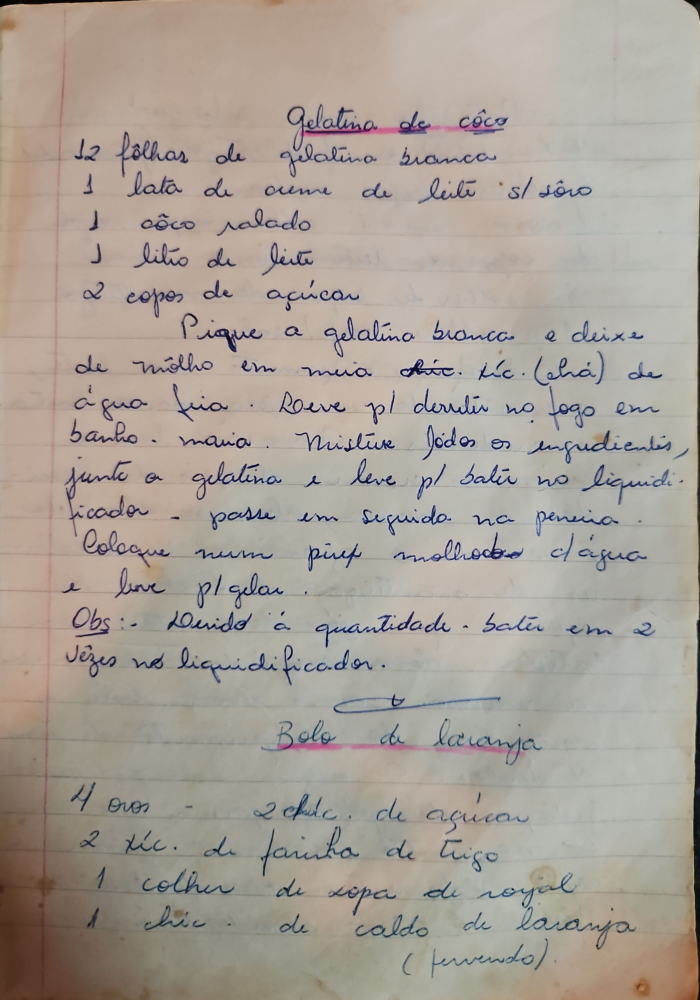 Gelatina de côco
12 fôlhas de gelatina branca
1 lata de creme de leite s/ sôro
1 côco ralado
1 litro de leite
2 copos de açúcar
Pique a gelatina branca e deixe
de môlho em meia chic. xíc. (chá) de
água fria. Leve p/ derreter no fogo em
banho-maria. Misture tôdos os ingredientes,
junte a gelatina e leve p/ bater no liquidi-
ficador - passe em seguida na peneira.
Coloque num pirex molhado c/ água
e leve p/ gelar.
Obs:- Devido á quantidade - bater em 2
vêzes no liquidificador.
Bolo de laranja
4 ovos - 2 chic. de açúcar
2 xíc. de farinha de trigo
1 colher de sopa de royal
1 chic. de caldo de laranja
(fervendo).